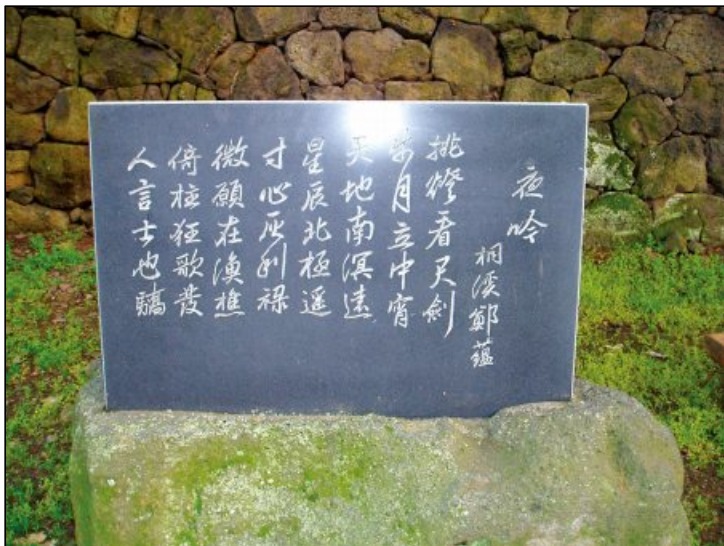 夜吟
桐溪鄭蘊
挑燈看尺劍
乘月立中宵
天地南溟遠
星辰北極遥
寸心灰利禄
微願在漁樵
倚柱狂歌發
人言士也驕